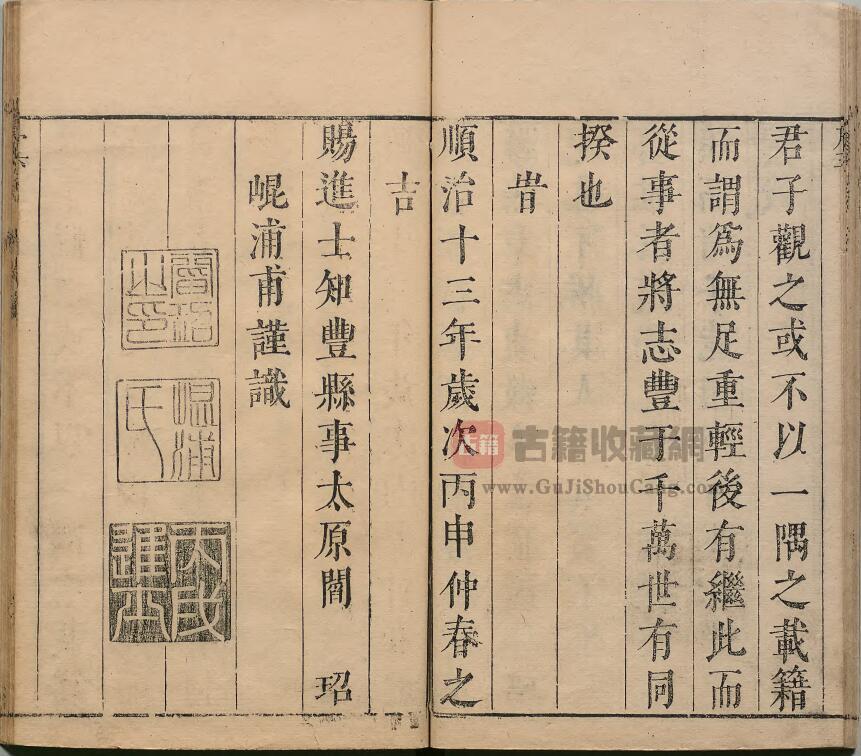 君子觀之或不以一隅之載籍
而謂爲無足重輕後有繼此而
從事者將志豐于千萬世有同
揆也
旹
順治十三年歲次丙申仲春之
吉
賜進士知豐縣事太原閻 玿
崐浦甫謹識
崐浦氏
丙戌進士
古籍
古籍收藏網
www.GuJiShouCang.com